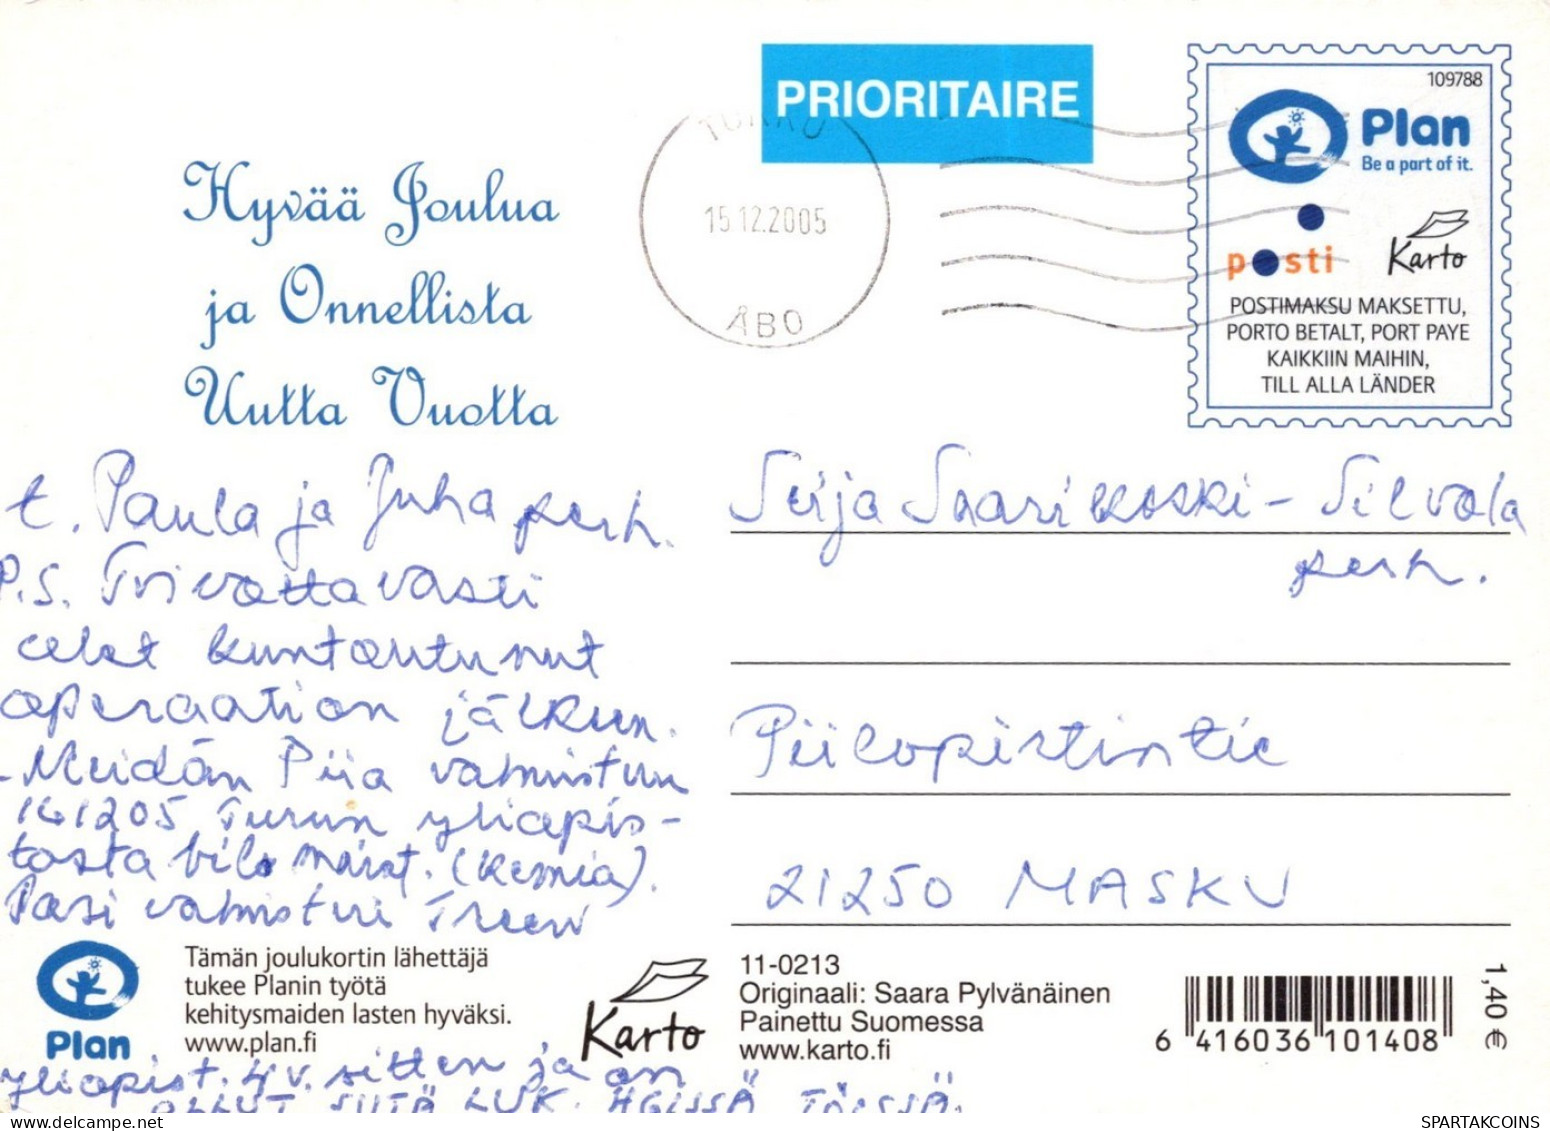 PRIORITAIRE
109788
Plan
Be a part of it.
posti
Karto
POSTIMAKSU MAKSETTU,
PORTO BETALT, PORT PAYE
KAIKKIIN MAIHIN,
TILL ALLA LÄNDER
TURKU
15.12.2005
ÅBO
Hyvää Joulua
ja Onnellista
Uutta Vuotta
t. Paula ja Juha perh.
P.S. Toivottavasti
olet kuntoutunut
operaation jälkeen.
-Meidän Piia valmistuu
161205 Turun yliopis-
tosta (kemia).
Pasi valmistui Treen
yliopist. 4 v. sitten ja on
OLLUT SIITÄ LUK. TÖISSÄ.
Seija Saarikoski-Silvola
perh.
Piilopistintie
21250 MASKU
Plan
Tämän joulukortin lähettäjä
tukee Planin työtä
kehitysmaiden lasten hyväksi.
www.plan.fi
Karto
11-0213
Originaali: Saara Pylvänäinen
Painettu Suomessa
www.karto.fi
6 416036 101408
1,40 €
SPARTAKCOINS